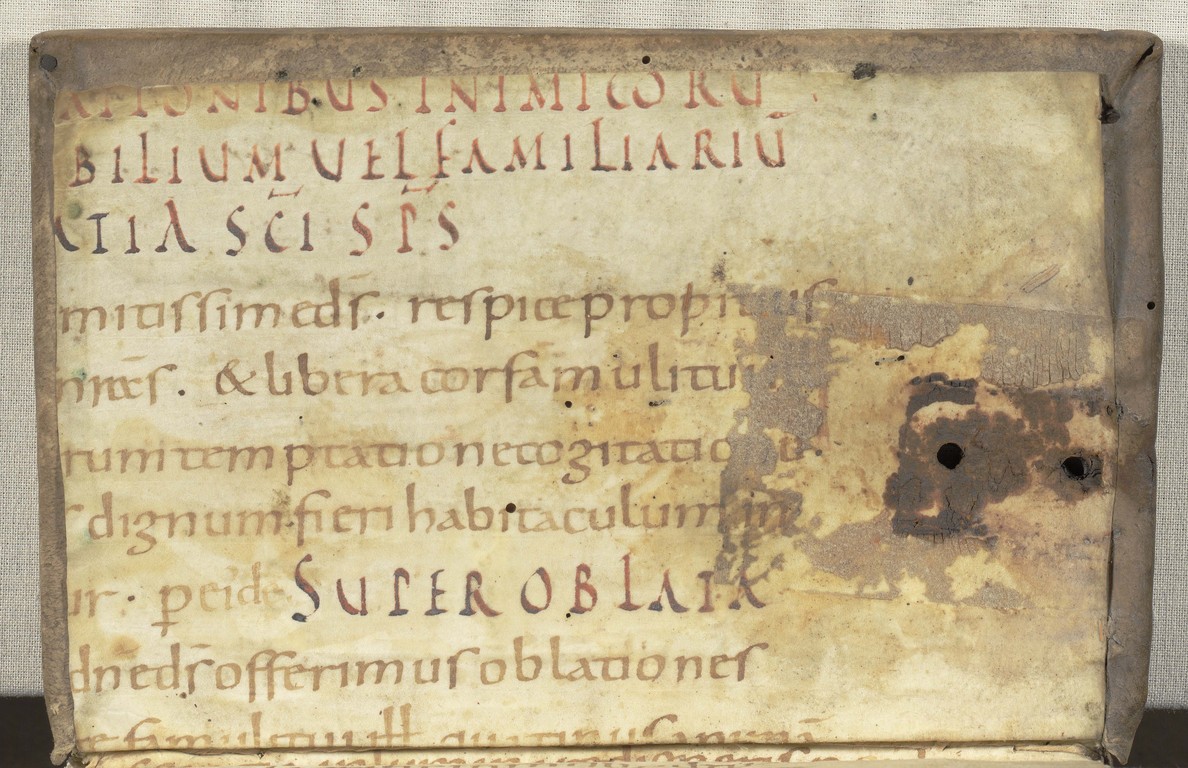 ATIONIBUS INIMICORŪ
BILIUM UEL FAMILIARIŪ
ATIA SC̄I SP̄S
mitissime ds̄. respice propitius
& libera cor famuli tui
rum temptatione cogitationū.
dignum fieri habitaculum
ur. peide SUPER OBLATA
dn̄e ds̄ offerimus oblationes
famuli tui ill̄ quatinus animā